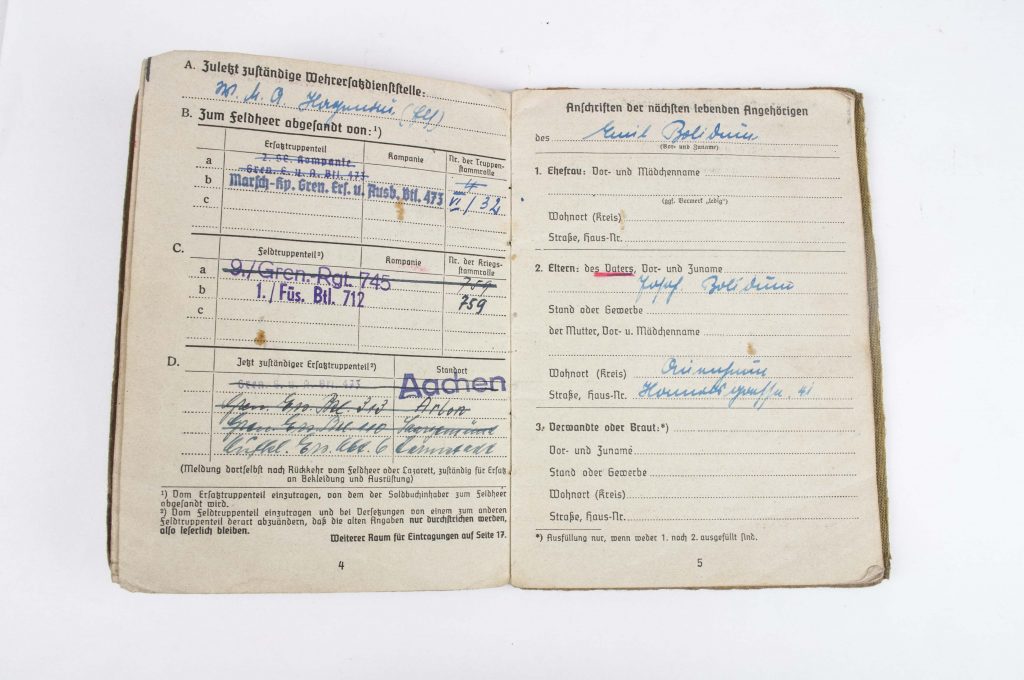 A. Zuletzt zuständige Wehrersatzdienststelle:
W. M. A. Hagenau (Els)
B. Zum Feldheer abgesandt von:¹)
Ersatztruppenteil Kompanie Nr. der Truppenstammrolle
a
2. GE. Kompanie
Gren. E. u. A. Btl. 473
b Marsch-Kp. Gren. Ers. u. Ausb. Btl. 473 VI/32
c
C. Feldtruppenteil²) Kompanie Nr. der Kriegsstammrolle
a 9./Gren.-Rgt. 745 759
b 1./Füs. Btl. 712 759
c
D. Jetzt zuständiger Ersatztruppenteil²) Standort
Gren. E. u. A. Btl. 473 Aachen
Gren. Ers. Btl.
Gren. Ers. Btl. 110
Ers. Abt. 6
(Meldung dortselbst nach Rückkehr vom Feldheer oder Lazarett, zuständig für Ersatz
an Bekleidung und Ausrüstung)
¹) Vom Ersatztruppenteil einzutragen, von dem der Soldbuchinhaber zum Feldheer
abgesandt wird.
²) Vom Feldtruppenteil einzutragen und bei Versetzungen von einem zum anderen
Feldtruppenteil derart abzuändern, daß die alten Angaben nur durchstrichen werden,
also leserlich bleiben.
Weiterer Raum für Eintragungen auf Seite 17.
4
Anschriften der nächsten lebenden Angehörigen
des Emil
(Vor- und Zuname)
1. Ehefrau: Vor- und Mädchenname
(ggf. Vermerk „ledig")
Wohnort (Kreis)
Straße, Haus-Nr.
2. Eltern: des Vaters, Vor- und Zuname
Josef
Stand oder Gewerbe
der Mutter, Vor- u. Mädchenname
Wohnort (Kreis)
Straße, Haus-Nr. 41
3. Verwandte oder Braut:*)
Vor- und Zuname
Stand oder Gewerbe
Wohnort (Kreis)
Straße, Haus-Nr.
*) Ausfüllung nur, wenn weder 1. noch 2. ausgefüllt sind.
5